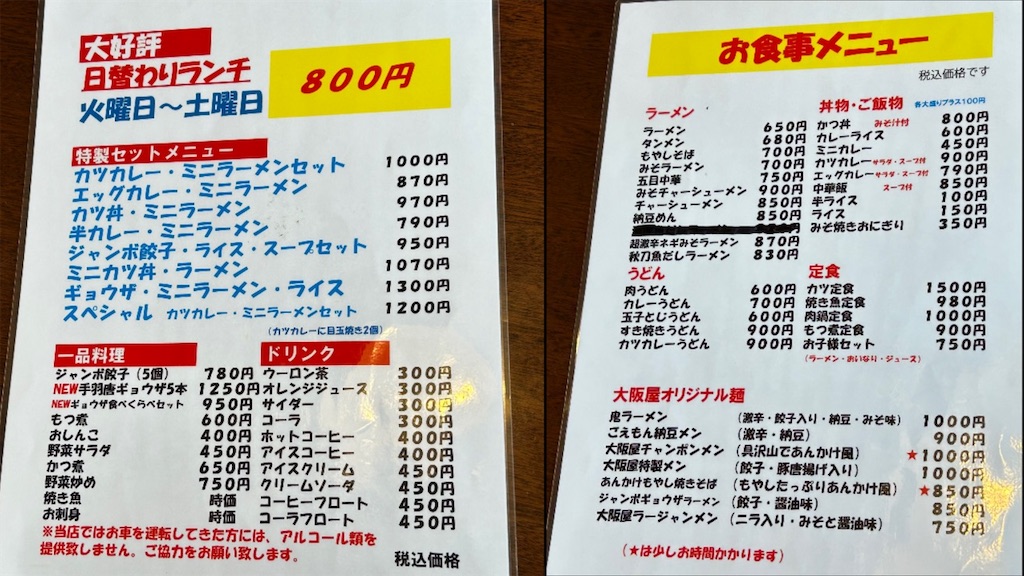 大好評
日替わりランチ
火曜日～土曜日
800円
特製セットメニュー
カツカレー・ミニラーメンセット 1000円
エッグカレー・ミニラーメン 870円
カツ丼・ミニラーメン 970円
半カレー・ミニラーメン 790円
ジャンボ餃子・ライス・スープセット 950円
ミニカツ丼・ラーメン 1070円
ギョウザ・ミニラーメン・ライス 1300円
スペシャル カツカレー・ミニラーメンセット 1200円
（カツカレーに目玉焼き2個）
一品料理
ジャンボ餃子（5個） 780円
NEW手羽唐ギョウザ5本 1250円
NEWギョウザ食べくらべセット 950円
もつ煮 600円
おしんこ 400円
野菜サラダ 450円
かつ煮 650円
野菜炒め 750円
焼き魚 時価
お刺身 時価
ドリンク
ウーロン茶 300円
オレンジジュース 300円
サイダー 300円
コーラ 300円
ホットコーヒー 400円
アイスコーヒー 400円
アイスクリーム 450円
クリームソーダ 450円
コーヒーフロート 450円
コーラフロート 450円
※当店ではお車を運転してきた方には、アルコール類を
提供致しません。ご協力をお願い致します。
税込価格
お食事メニュー
税込価格です
ラーメン
ラーメン 650円
タンメン 680円
もやしそば 700円
みそラーメン 700円
五目中華 750円
みそチャーシューメン 900円
チャーシューメン 850円
納豆めん 850円
超激辛ネギみそラーメン 870円
秋刀魚だしラーメン 830円
丼物・ご飯物 各大盛りプラス100円
かつ丼 みそ汁付 800円
カレーライス 600円
ミニカレー 450円
カツカレー サラダ・スープ付 900円
エッグカレー サラダ・スープ付 790円
中華飯 スープ付 850円
半ライス 100円
ライス 150円
みそ焼きおにぎり 350円
うどん
肉うどん 600円
カレーうどん 700円
玉子とじうどん 600円
すき焼きうどん 900円
カツカレーうどん 900円
定食
カツ定食 1500円
焼き魚定食 980円
肉鍋定食 1000円
もつ煮定食 900円
お子様セット 750円
（ラーメン・おいなり・ジュース）
大阪屋オリジナル麺
鬼ラーメン （激辛・餃子入り・納豆・みそ味） 1000円
ごえもん納豆メン （激辛・納豆） 900円
大阪屋チャンポンメン （具沢山であんかけ風） ★1000円
大阪屋特製メン （餃子・豚唐揚げ入り） 1000円
あんかけもやし焼きそば （もやしたっぷりあんかけ風） ★850円
ジャンボギョウザラーメン （餃子・醤油味） 850円
大阪屋ラージャンメン （ニラ入り・みそと醤油味） 750円
（★は少しお時間かかります）